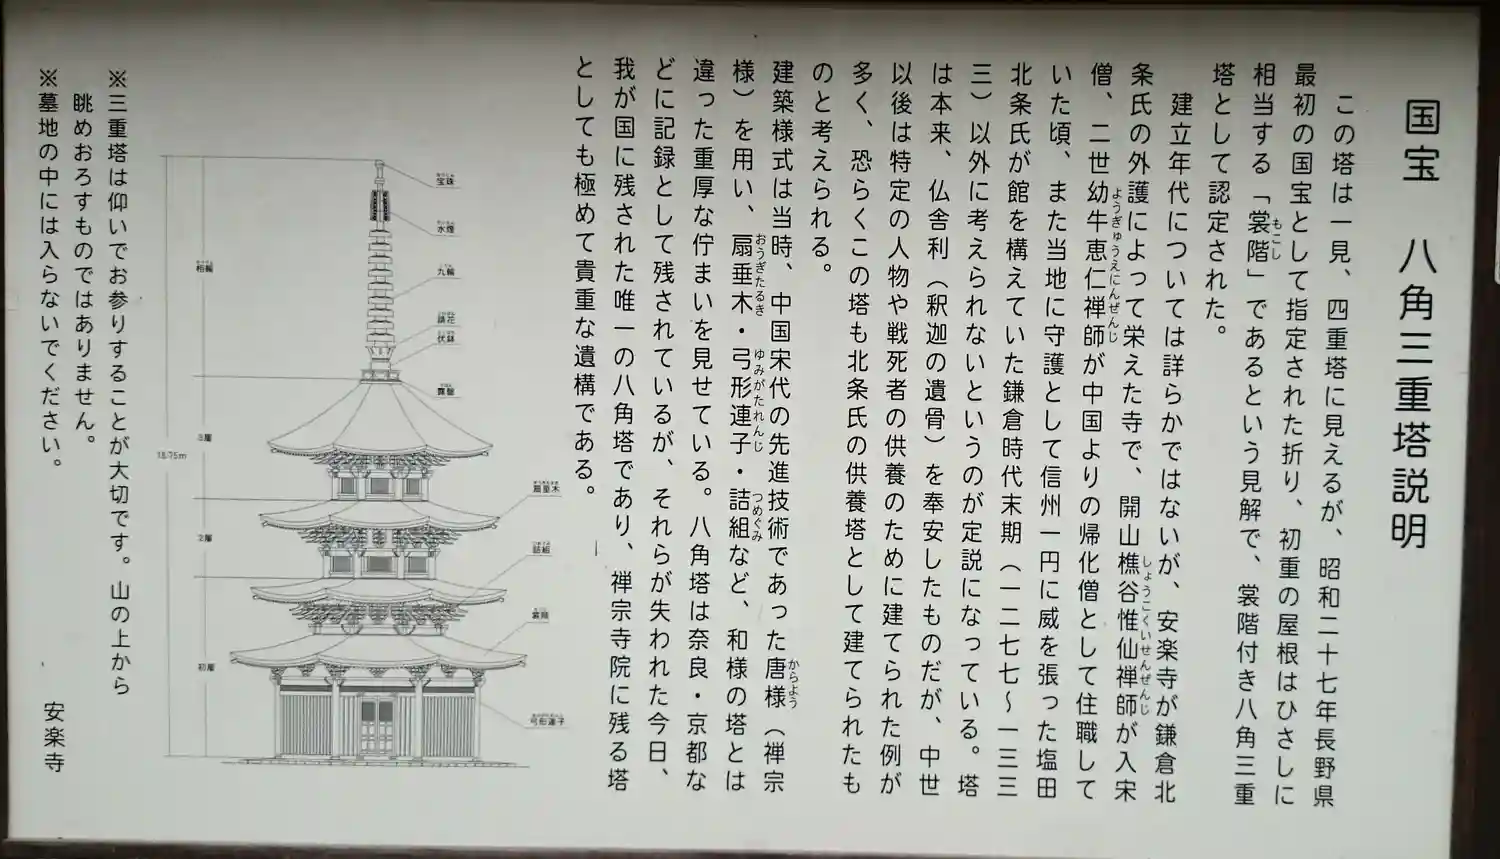 国宝 八角三重塔説明
この塔は一見、四重塔に見えるが、昭和二十七年長野県
最初の国宝として指定された折り、初重の屋根はひさしに
相当する「裳階」であるという見解で、裳階付き八角三重
もこし
塔として認定された。
建立年代については詳らかではないが、安楽寺が鎌倉北
条氏の外護によって栄えた寺で、開山樵谷惟仙禅師が入宋
しょうこくいせんぜんじ
僧、二世幼牛恵仁禅師が中国よりの帰化僧として住職して
ようぎゅうえにんぜんじ
いた頃、また当地に守護として信州一円に威を張った塩田
北条氏が館を構えていた鎌倉時代末期（一二七七～一三三
三）以外に考えられないというのが定説になっている。塔
は本来、仏舎利（釈迦の遺骨）を奉安したものだが、中世
以後は特定の人物や戦死者の供養のために建てられた例が
多く、恐らくこの塔も北条氏の供養塔として建てられたも
のと考えられる。
建築様式は当時、中国宋代の先進技術であった唐様（禅宗
からよう
様）を用い、扇垂木・弓形連子・詰組など、和様の塔とは
おうぎたるき
ゆみがたれんじ
つめぐみ
違った重厚な佇まいを見せている。八角塔は奈良・京都な
どに記録として残されているが、それらが失われた今日、
我が国に残された唯一の八角塔であり、禅宗寺院に残る塔
としても極めて貴重な遺構である。
宝珠
水煙
九輪
請花
伏鉢
露盤
相輪
3層
18.75m
2層
初層
扇垂木
詰組
裳階
弓形連子
※三重塔は仰いでお参りすることが大切です。山の上から
眺めおろすものではありません。
※墓地の中には入らないでください。
安楽寺